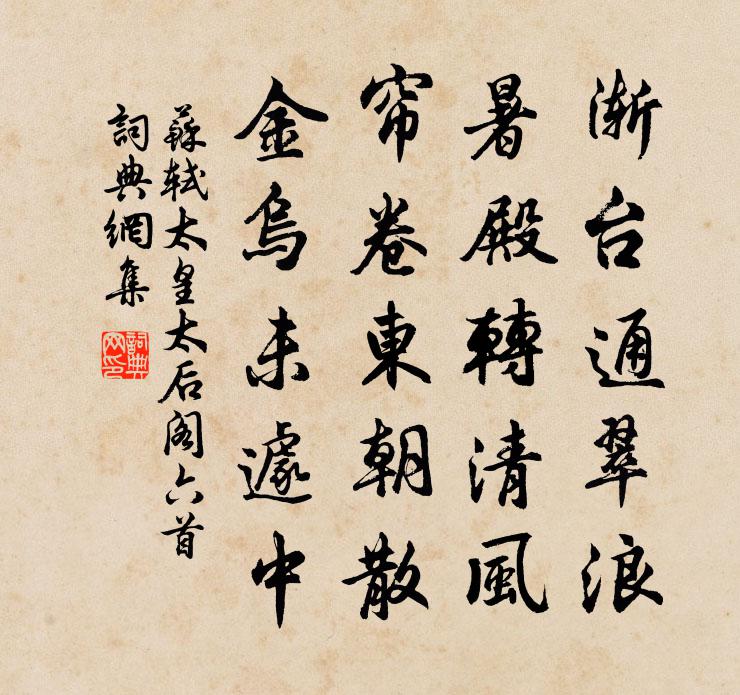 渐台通翠浪
暑殿轉清風
帘卷東朝散
金烏未遽中
蘇轼太皇太后阁六首
詞典網集
詞典网印